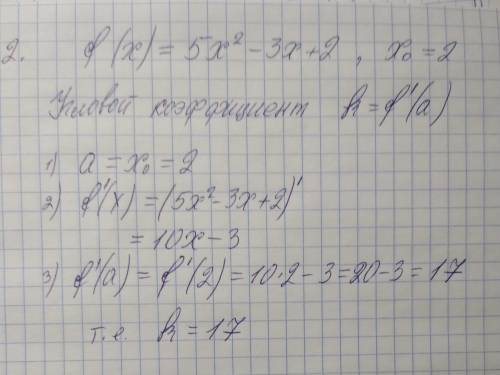 2. f(x) = 5x² - 3x + 2 , x₀ = 2
Угловой коэффициент k = f'(a)
1) a = x₀ = 2
2) f'(x) = (5x² - 3x + 2)'
= 10x - 3
3) f'(a) = f'(2) = 10·2 - 3 = 20 - 3 = 17
т.е. k = 17